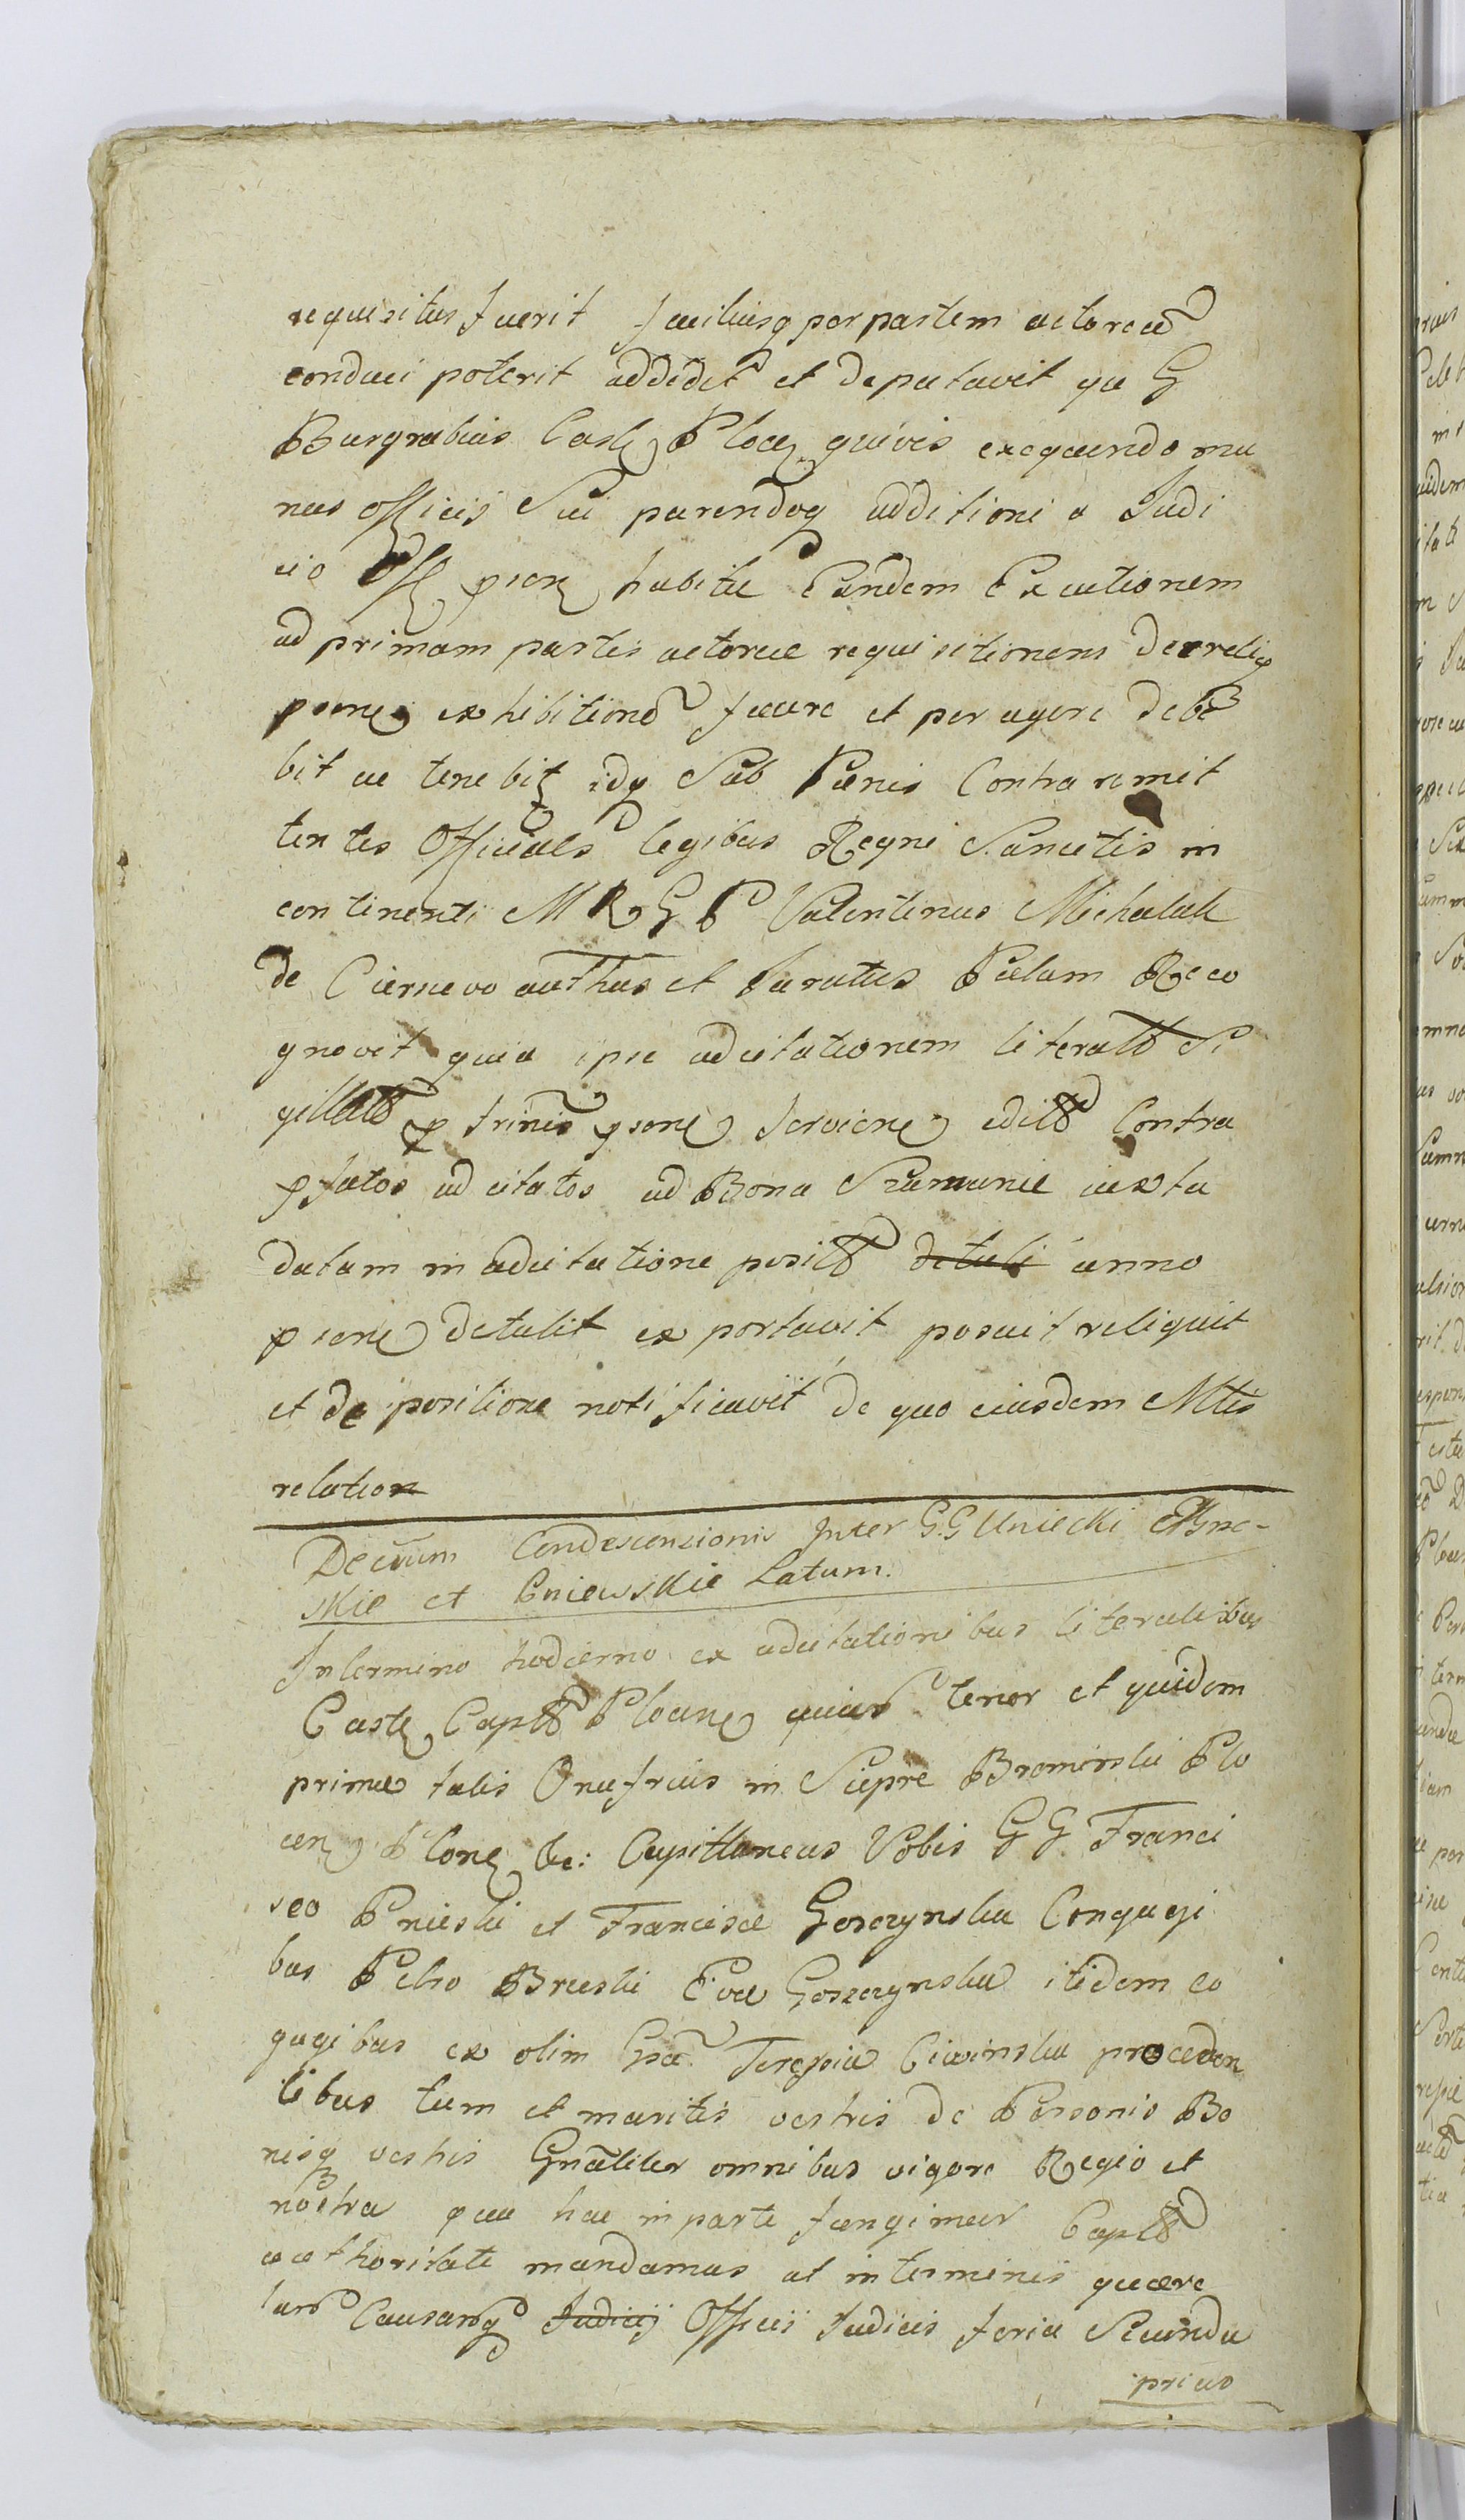 requisitus fuerit faciliusq per partem actorea
conduci poterit addidit et deputavit qu G
Burgrabius Castr Plocen quivis exequendo mu
nus officii Sui parendoq additioni a Judi
cio Off psen habitae Eandem Executionem
ad primam partis actoreae requisitionem Decretiq
psene exhibitione facere et peragere debe
bit ac tenebit idq Sub Paenis Contra remit
tentes Officiales legibus Regni Sancitis in
continenti M R G P Valentinus Michalak
de Ciersewo authus et Juratus Palam Reco
gnovit quia ipse adcitationem literalē Si
gillatā p trinis psene Serviene editā Contra
pfatos adcitatos ad Bona Szumanie iuxta
datam in adcitatione positā detuli anno
psene detulit exportavit posuit reliquit
et de positione notificavit de quo eiusdem Mtis
relation
Decrum Condescensionis Inter G.G Uniecki Brze-
skie et Gniewskie Latum.
In termino hodierno ex adcitationibus literalibus
Castr Captā Plocane quar tenor et quidem
primae talis Onufrius in Siepre Bromirski Plo
cen Plone &c: Capittaneus Vobis G G Franci
sco Pnieski et Francisce Goszczynska Conguji
bus Petro Brzeski Evae Goszczynska itidem co
gugibus ex olim Gsa Teressia Ciwinska proceden
tibus tum et maritis vestris de Personis Bo
nisq vestris Gnāliter omnibus vigore Regio et
nostra qua hac in parte fungimur Captā
authoritate mandamus ut in terminis quaere
lars Causarq Judicij Officii Judicis feria Secunda
prius